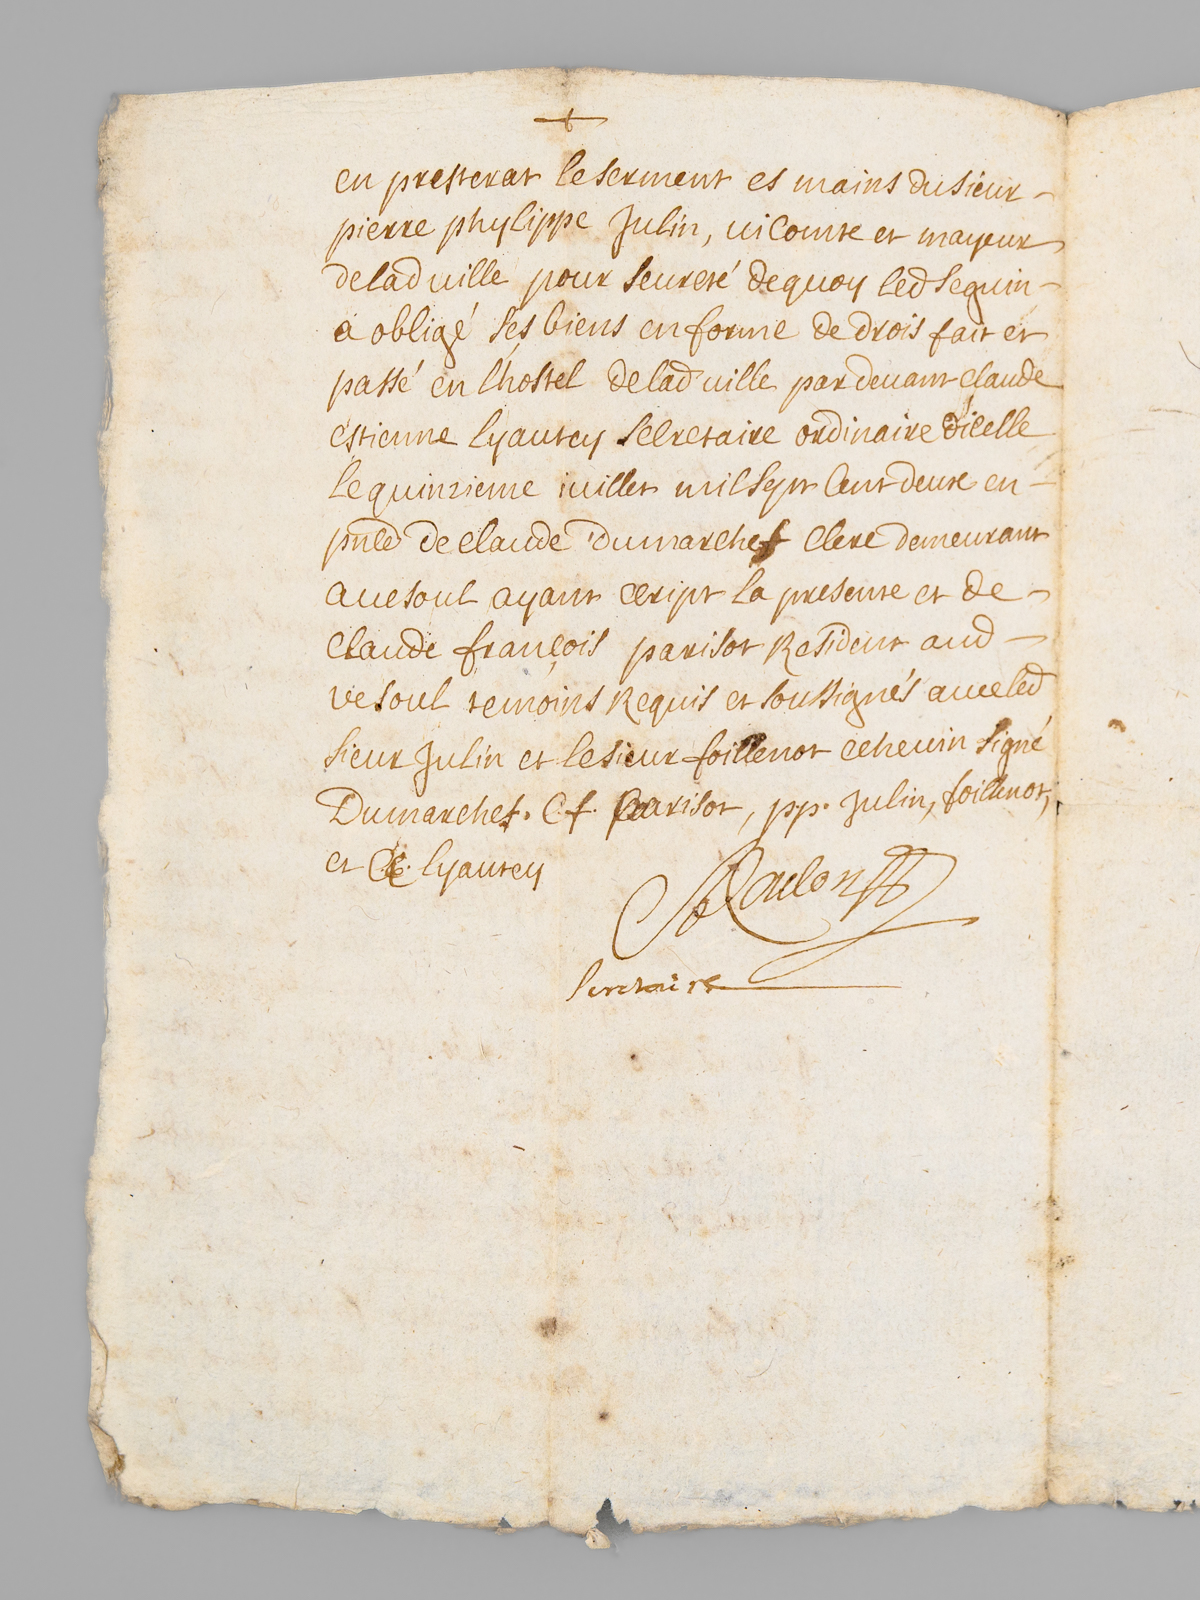 en presterat le serment es mains du sieur
pierre phylippe Julin, vicomte et mayeur
de lad ville pour seureté de quoy led seguin
a obligé ses biens en forme de drois fait et
passé en l'hostel de lad ville par devant claude
estienne lyautey secretaire ordinaire d'icelle
le quinzieme iuillet mil sept cent deux en
pnce de claude dumarchef clerc demeurant
a vesoul ayant escript la presente et de
claude françois parisot Resident aud
vesoul temoins Requis et soussignés avec led
sieur Julin et le sieur foillenot echevin signé
Dumarchef. C f. parisot, pp. Julin, foillenot,
et CE. lyautey
secretaire